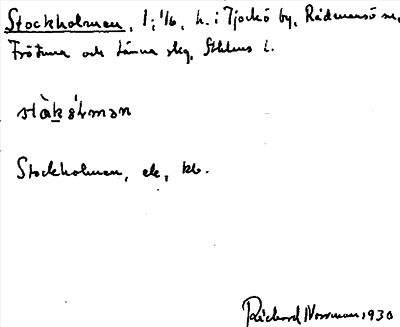 Stockholmen, 1; 1/6, h. i Tjockö by, Rådmansö sn,
Frötuna och Länna skg, Sthlms l.
stàkɷlman
Stockholmen, ek, kb.
Rickard Norrman, 1930